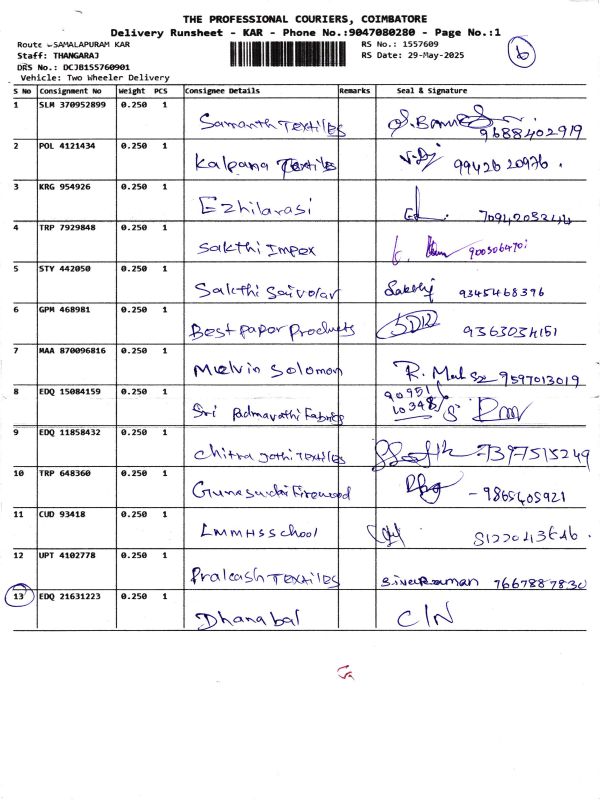 THE PROFESSIONAL COURIERS, COIMBATORE
Delivery Runsheet - KAR - Phone No.:9047080280 - Page No.:1
Route :SAMALAPURAM KAR RS No.: 1557609
Staff: THANGARAJ RS Date: 29-May-2025
DRS No.: DCJB155760901
Vehicle: Two Wheeler Delivery
S No Consignment No Weight PCS Consignee Details Remarks Seal & Signature
1 SLM 370952899 0.250 1
Samanth Textiles 9688402919
2 POL 4121434 0.250 1
Kalpana Textiles
3 KRG 954926 0.250 1
Ezhilarasi
4 TRP 7929848 0.250 1
Sakthi Impex
5 STY 442050 0.250 1
Sakthi Saivolar 9345468396
6 GPM 468981 0.250 1
Best paper products 9363034151
7 MAA 870096816 0.250 1
Melvin Solomon 9597013019
8 EDQ 15084159 0.250 1
90951
Sri Padmavathi Fabrics 10348
9 EDQ 11858432 0.250 1
Chitra jothi Textiles 7397515249
10 TRP 648360 0.250 1
Gunasundari Firewood - 9865405921
11 CUD 93418 0.250 1
LMMHSschool
12 UPT 4102778 0.250 1
Prakash Textiles Sivaraman 7667887830
13 EDQ 21631223 0.250 1
Dhanabal C/N